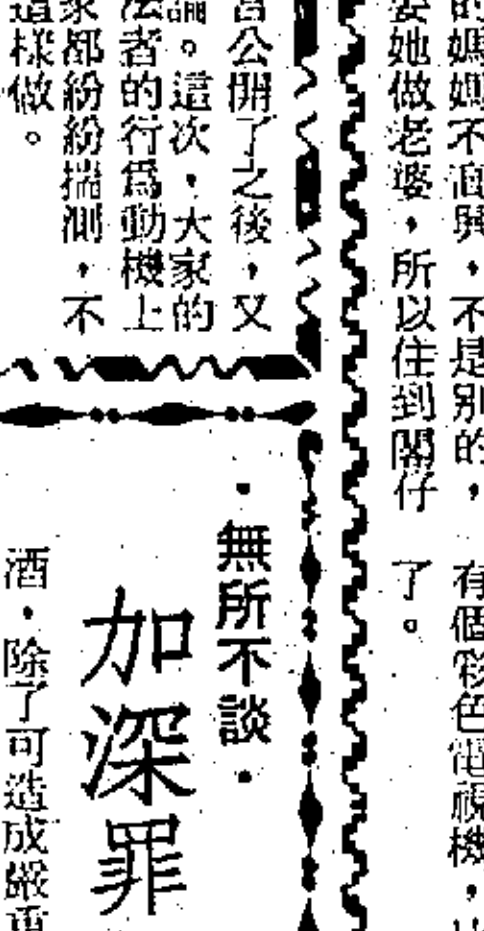 的媽媽不高興，不是別的，
要她做老婆，所以住到閣仔
有個彩色電視機，
了。
公開了之後，又
論。這次，大家的
法者的行爲動機上
家都紛紛揣測，不
這樣做。
・無所不談・
加深罪
酒，除了可造成嚴重